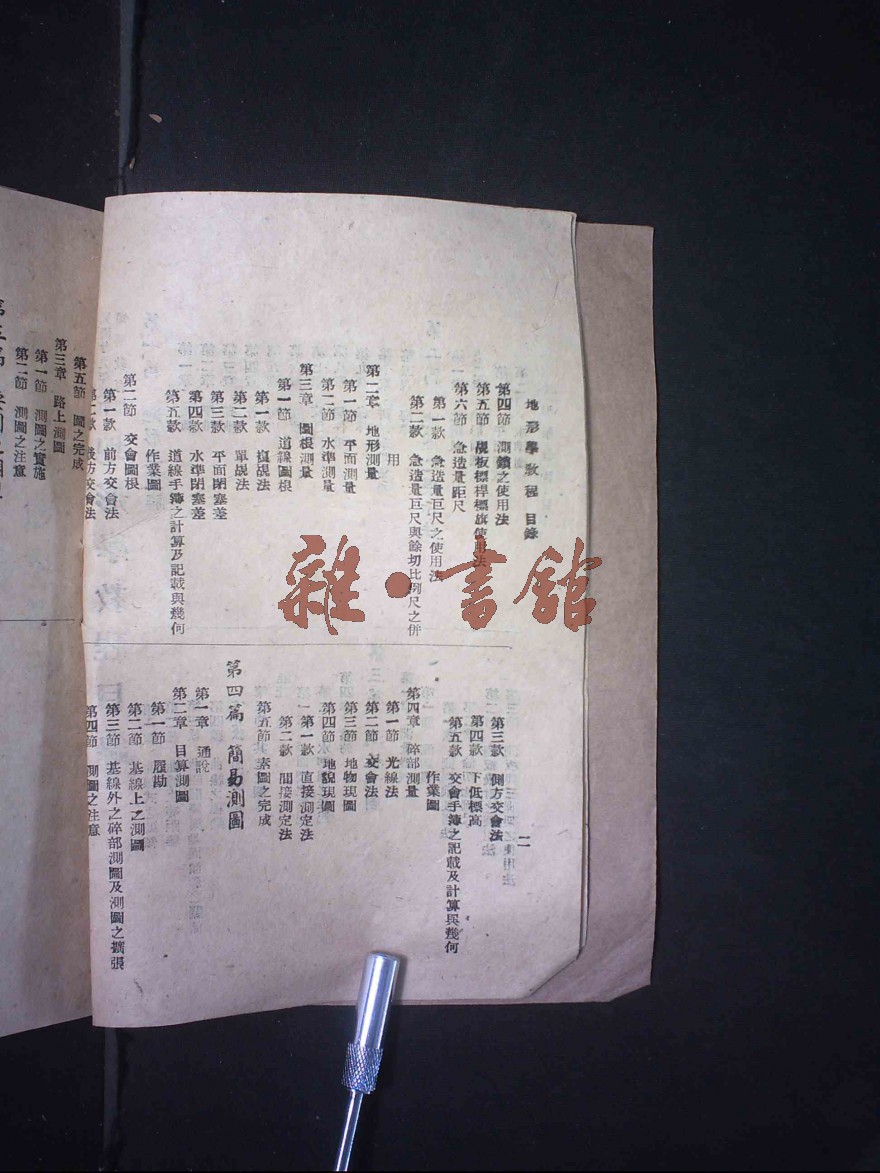 地形學教程 目錄
二
第四節 測鎖之使用法
第五節 覘板標桿標旗使用法
第六節 急造量距尺
第一款 急造量巨尺之使用法
第二款 急造量巨尺與餘切比例尺之併
用
第二章 地形測量
第一節 平面測量
第二節 水準測量
第三章 圖根測量
第一節 道線圖根
第一款 複覘法
第二款 單覘法
第三款 平面閉塞差
第四款 水準閉塞差
第五款 道線手簿之計算及記載與幾何
作業圖
第二節 交會圖根
第一款 前方交會法
第二款 後方交會法
第三款 側方交會法
第四款 下低標高
第五款 交會手簿之記載及計算與幾何
作業圖
第四章 碎部測量
第一節 光線法
第二節 交會法
第三節 地物現圖
第四節 地貌現圖
第一款 直接測定法
第二款 間接測定法
第五節 素圖之完成
第四篇 簡易測圖
第一章 通說
第二章 目算測圖
第一節 履勘
第二節 基線上之測圖
第三節 基線外之碎部測圖及測圖之擴張
第四節 測圖之注意
第五節 圖之完成
第三章 路上測圖
第一節 測圖之實施
第二節 測圖之注意
雜·書館